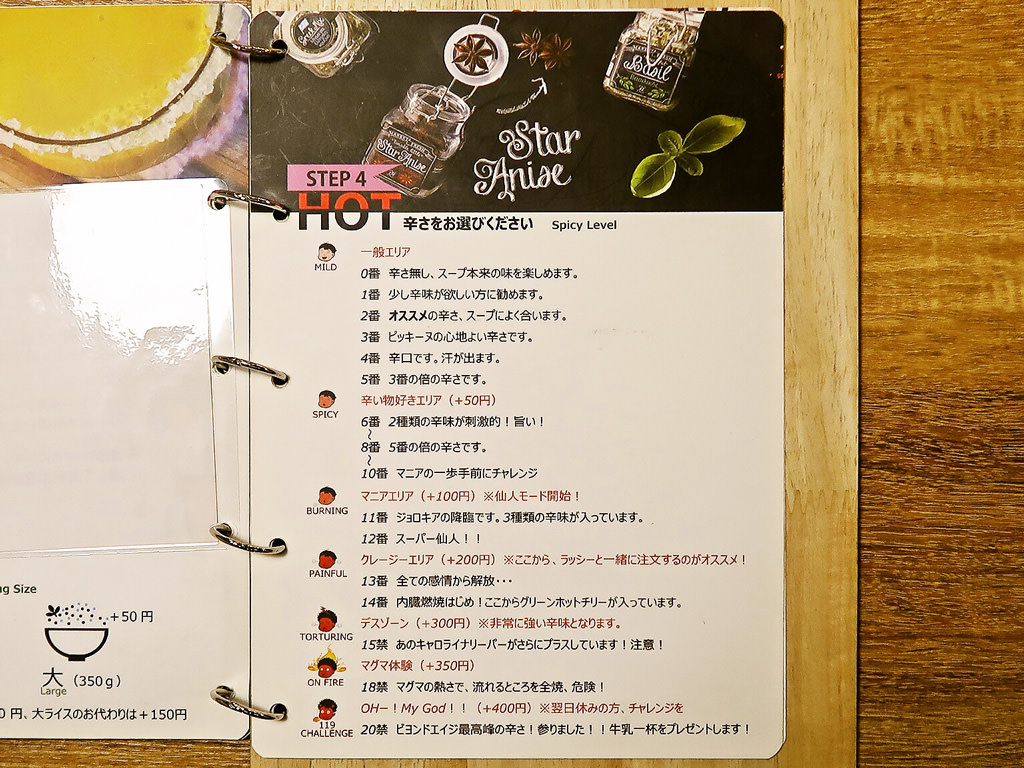 Basil
Star Anise
Star
Anise
STEP 4
HOT 辛さをお選びください Spicy Level
MILD
一般エリア
0番 辛さ無し、スープ本来の味を楽しめます。
1番 少し辛味が欲しい方に勧めます。
2番 オススメの辛さ、スープによく合います。
3番 ピッキーヌの心地よい辛さです。
4番 辛口です。汗が出ます。
5番 3番の倍の辛さです。
SPICY
辛い物好きエリア（+50円）
6番 2種類の辛味が刺激的！旨い！
〜
8番 5番の倍の辛さです。
〜
10番 マニアの一歩手前にチャレンジ
BURNING
マニアエリア（+100円）※仙人モード開始！
11番 ジョロキアの降臨です。3種類の辛味が入っています。
12番 スーパー仙人！！
PAINFUL
クレージーエリア（+200円）※ここから、ラッシーと一緒に注文するのがオススメ！
13番 全ての感情から解放・・・
14番 内臓燃焼はじめ！ここからグリーンホットチリーが入っています。
TORTURING
デスゾーン（+300円）※非常に強い辛味となります。
15禁 あのキャロライナリーパーがさらにプラスしています！注意！
ON FIRE
マグマ体験（+350円）
18禁 マグマの熱さで、流れるところを全焼、危険！
119
CHALLENGE
OHー！My God！！（+400円）※翌日休みの方、チャレンジを
20禁 ビヨンドエイジ最高峰の辛さ！参りました！！牛乳一杯をプレゼントします！
ng Size
+50円
大（350g）
Large
0円、大ライスのお代わりは+150円